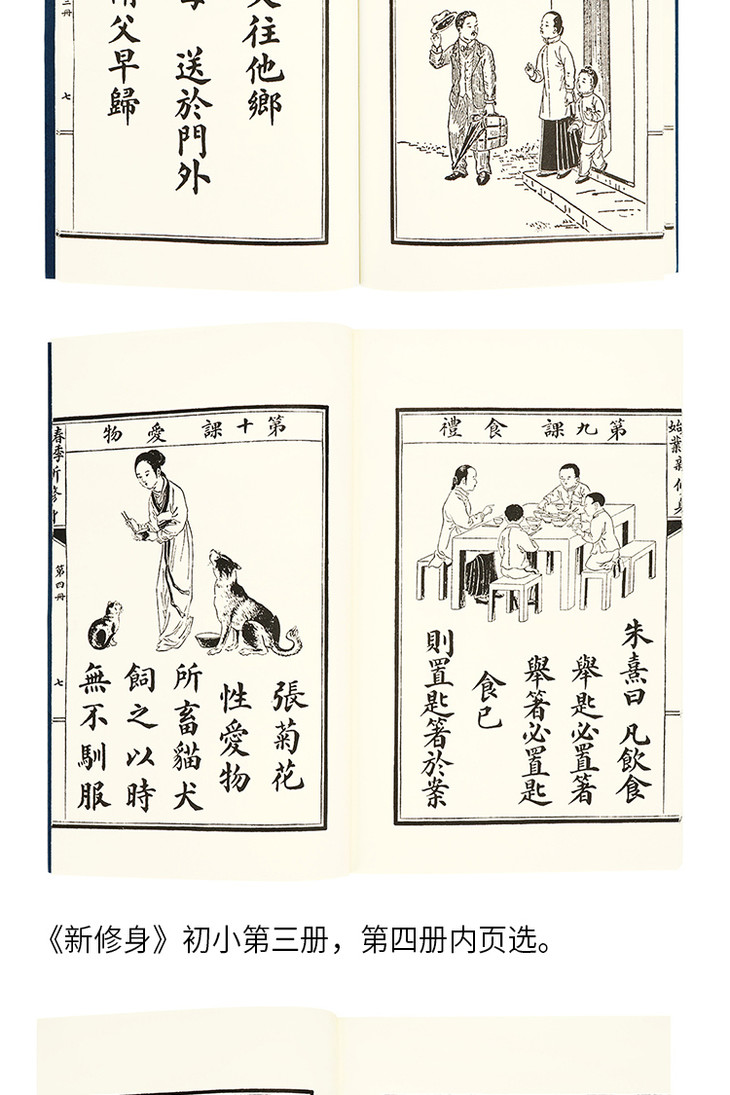 往他鄉
送於門外
父早歸
七
第九課 食禮
朱熹曰 凡飲食
舉匙必置箸
舉箸必置匙
食已
則置匙箸於案
第十課 愛物
張菊花
性愛物
所畜貓犬
飼之以時
無不馴服
第四冊
七
《新修身》初小第三册，第四册内页选。